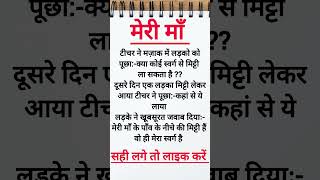 मेरी माँ
टीचर ने मज़ाक में लड़को को
पूछा:-क्या कोई स्वर्ग से मिट्टी
ला सकता है ??
दूसरे दिन एक लड़का मिट्टी लेकर
आया टीचर ने पूछा:-कहां से ये
लाया
लड़के ने खूबसूरत जवाब दिया:-
मेरी माँ के पाँव के नीचे की मिट्टी हैं
वो ही मेरा स्वर्ग है
सही लगे तो लाइक करें